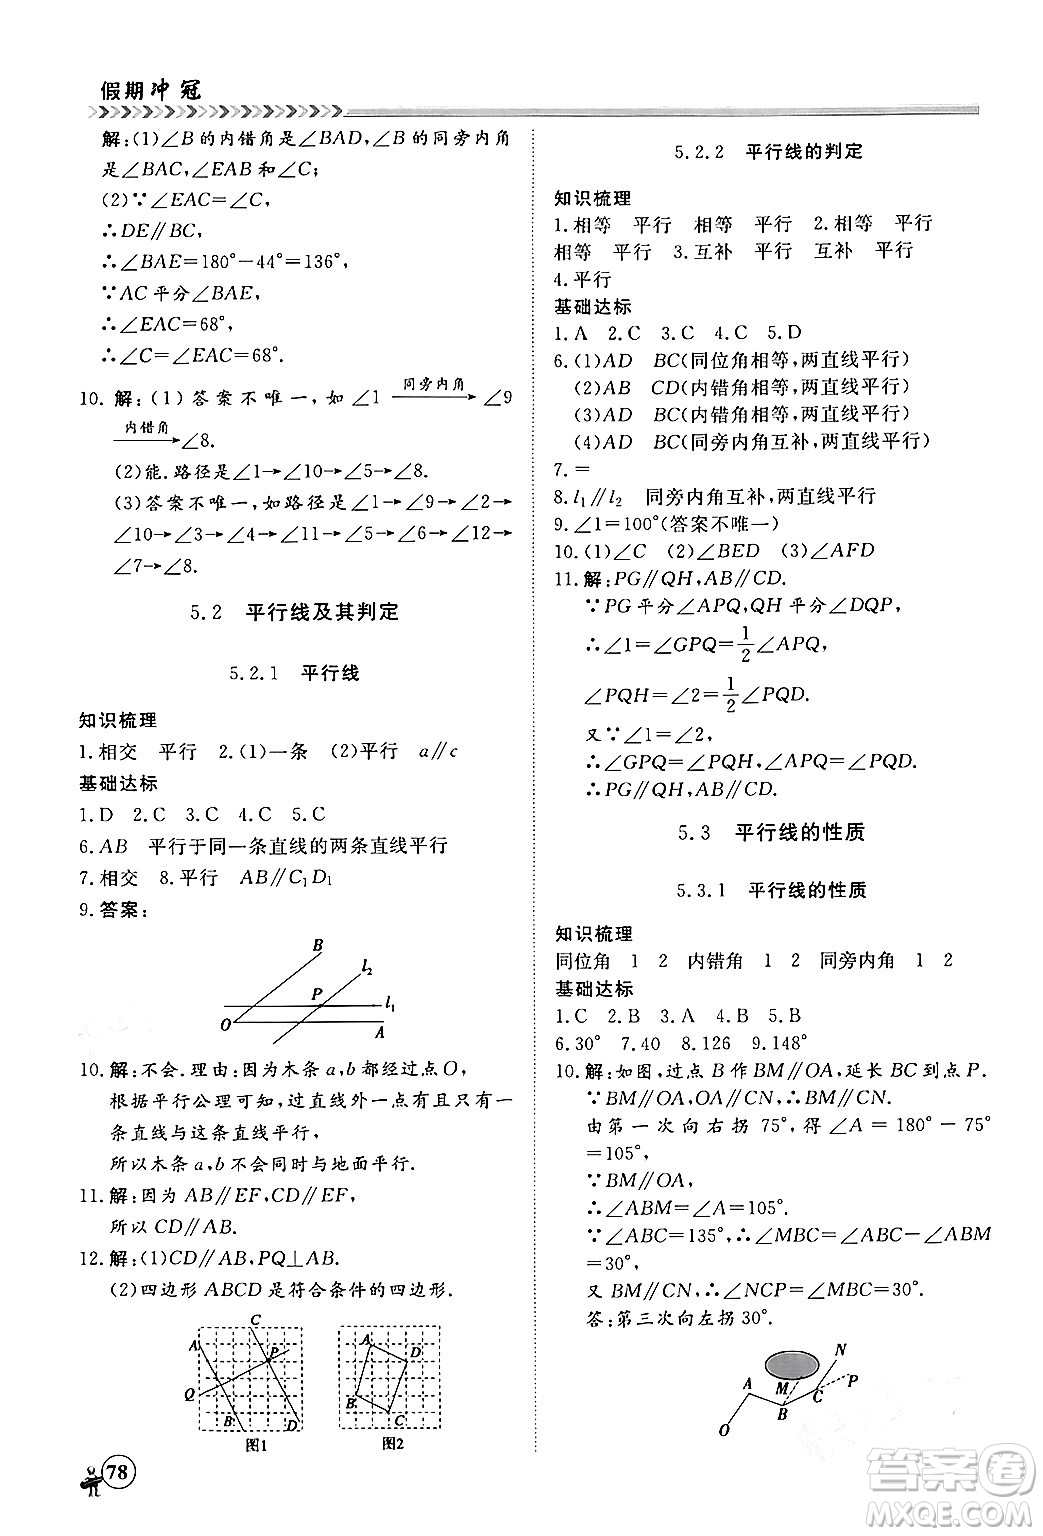 假期冲冠
解:(1)∠B的内错角是∠BAD,∠B的同旁内角
是∠BAC,∠EAB和∠C;
(2)∵∠EAC=∠C,
∴DE∥BC,
∴∠BAE=180°-44°=136°,
∵AC平分∠BAE,
∴∠EAC=68°,
∴∠C=∠EAC=68°.
10. 解:(1)答案不唯一,如∠1 同旁内角→ ∠9
内错角→ ∠8.
(2)能.路径是∠1→∠10→∠5→∠8.
(3)答案不唯一,如路径是∠1→∠9→∠2→
∠10→∠3→∠4→∠11→∠5→∠6→∠12→
∠7→∠8.
5.2 平行线及其判定
5.2.1 平行线
知识梳理
1.相交 平行 2.(1)一条 (2)平行 a∥c
基础达标
1.D 2.C 3.C 4.C 5.C
6.AB 平行于同一条直线的两条直线平行
7.相交 8.平行 AB∥C₁D₁
9.答案:
B
l₂
P
l₁
O
A
10.解:不会.理由:因为木条a,b都经过点O,
根据平行公理可知,过直线外一点有且只有一
条直线与这条直线平行,
所以木条a,b不会同时与地面平行.
11.解:因为AB∥EF,CD∥EF,
所以CD∥AB.
12.解:(1)CD∥AB,PQ⊥AB.
(2)四边形ABCD是符合条件的四边形.
A C P Q B D
图1
A D B C
图2
78
5.2.2 平行线的判定
知识梳理
1.相等 平行 相等 平行 2.相等 平行
相等 平行 3.互补 平行 互补 平行
4.平行
基础达标
1.A 2.C 3.C 4.C 5.D
6.(1)AD BC(同位角相等,两直线平行)
(2)AB CD(内错角相等,两直线平行)
(3)AD BC(内错角相等,两直线平行)
(4)AD BC(同旁内角互补,两直线平行)
7.=
8.l₁∥l₂ 同旁内角互补,两直线平行
9.∠1=100°(答案不唯一)
10.(1)∠C (2)∠BED (3)∠AFD
11.解:PG∥QH,AB∥CD.
∵PG平分∠APQ,QH平分∠DQP,
∴∠1=∠GPQ=1/2∠APQ,
∠PQH=∠2=1/2∠PQD.
又∵∠1=∠2,
∴∠GPQ=∠PQH,∠APQ=∠PQD.
∴PG∥QH,AB∥CD.
5.3 平行线的性质
5.3.1 平行线的性质
知识梳理
同位角 1 2 内错角 1 2 同旁内角 1 2
基础达标
1.C 2.B 3.A 4.B 5.B
6.30° 7.40 8.126 9.148°
10.解:如图,过点B作BM∥OA,延长BC到点P.
∵BM∥OA,OA∥CN,∴BM∥CN.
由第一次向右拐75°,得∠A=180°-75°
=105°.
∵BM∥OA,
∴∠ABM=∠A=105°.
∵∠ABC=135°,∴∠MBC=∠ABC-∠ABM
=30°.
又BM∥CN,∴∠NCP=∠MBC=30°.
答:第三次向左拐30°.
N
A M C P
B
O
答案圈
MXQE.COM